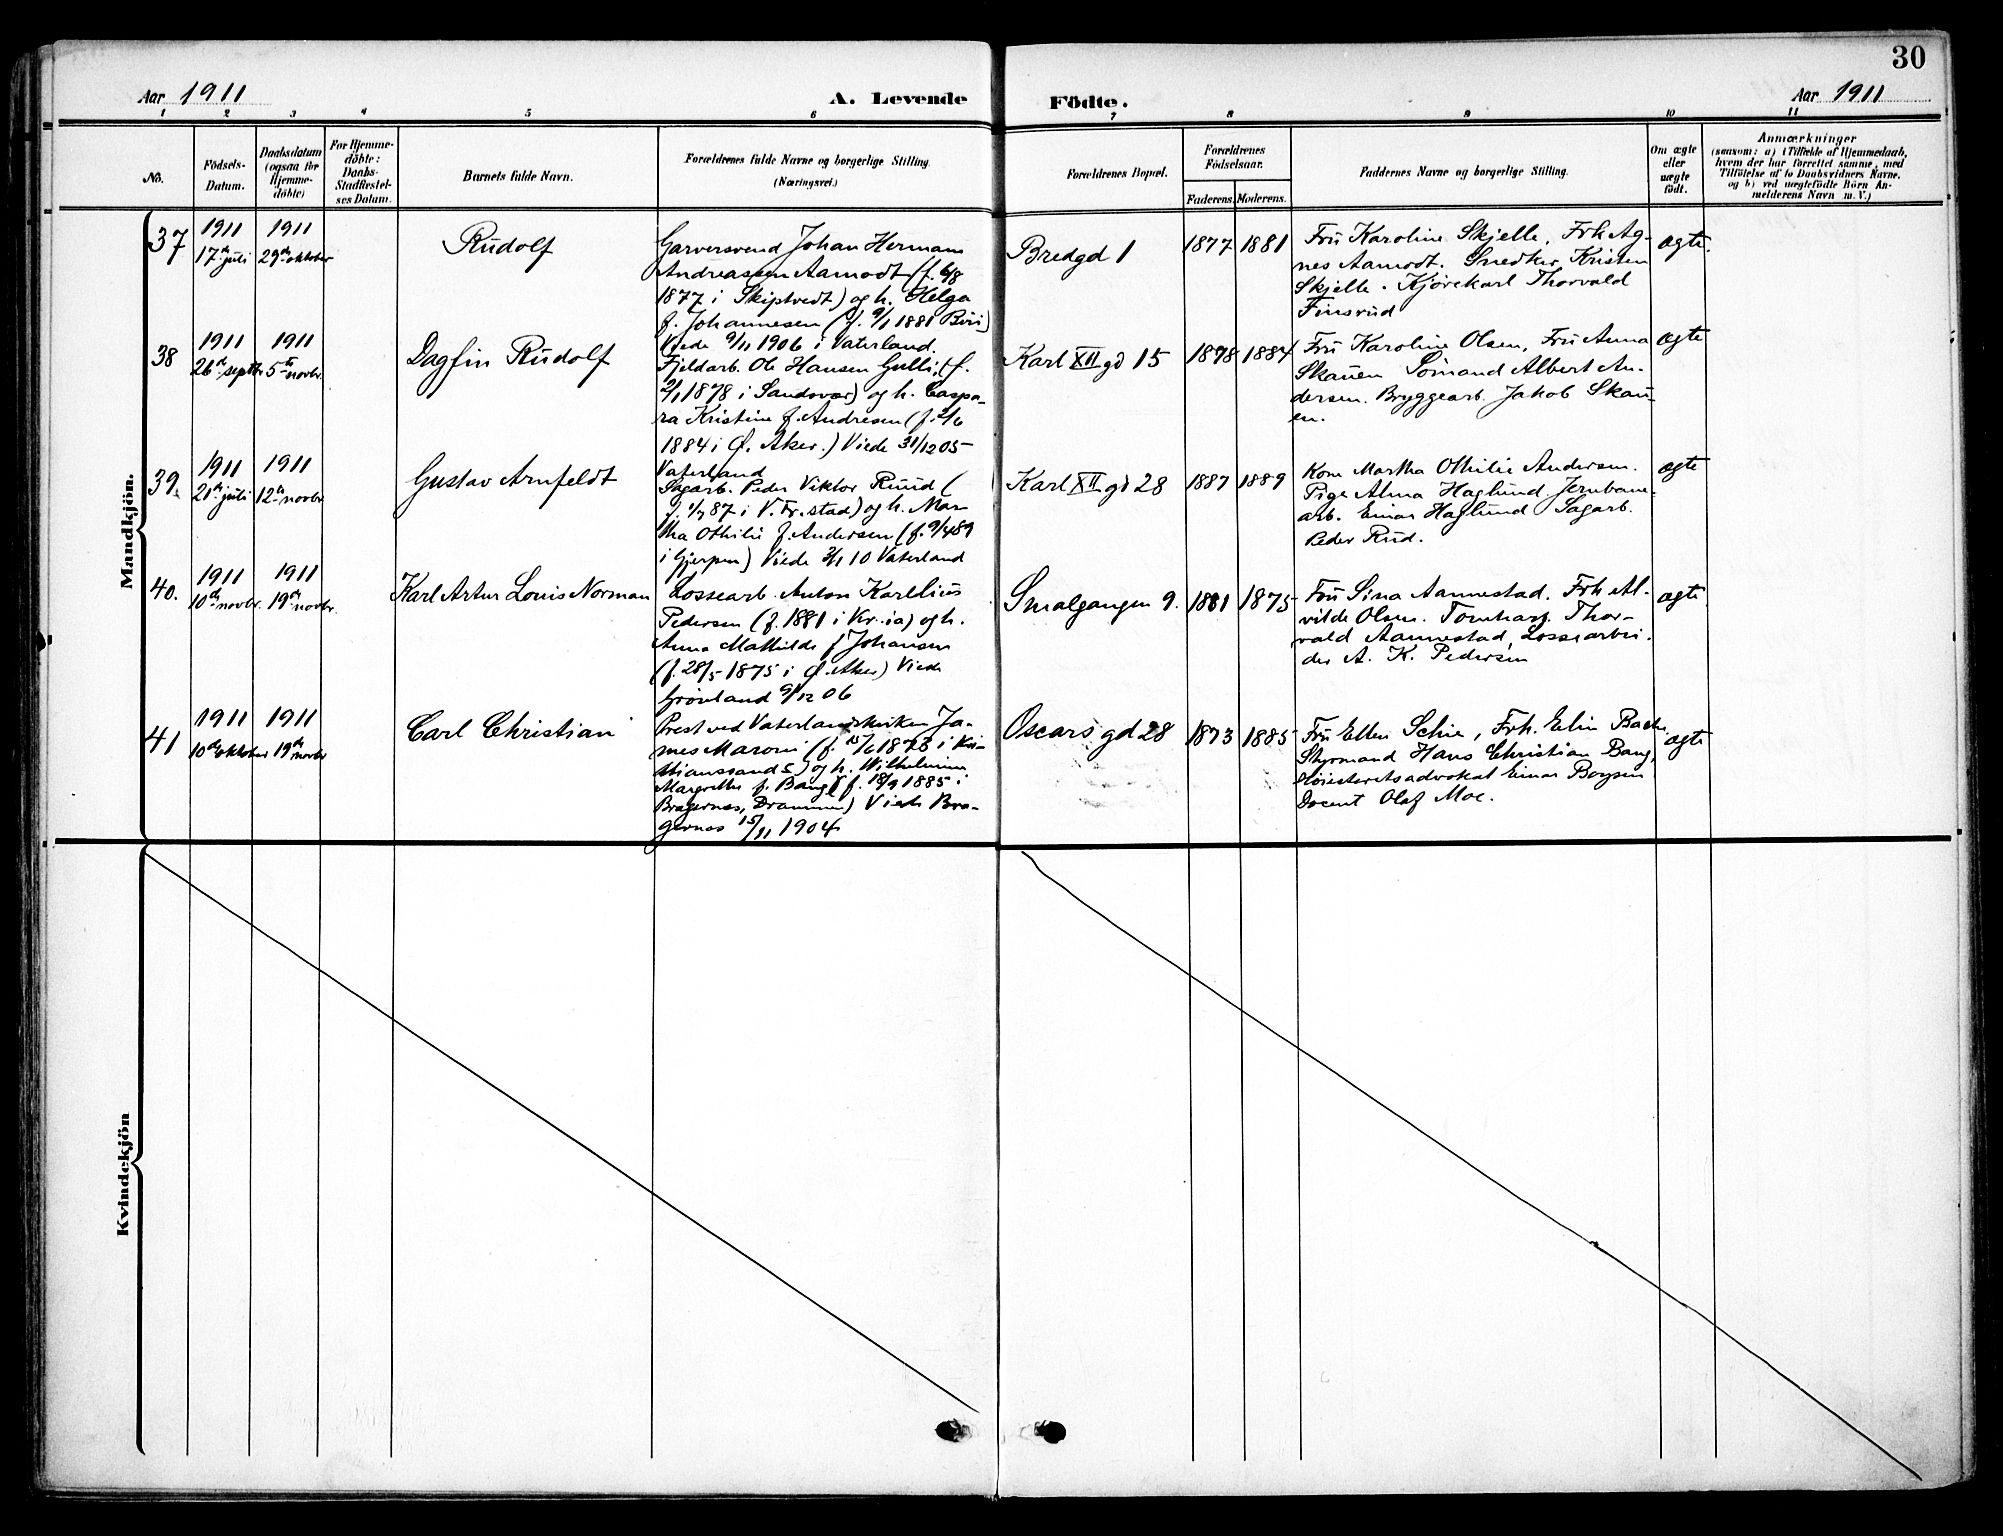 30
Aar 1911
A. Levende
Födte.
Aar 1911
1 2 3 4 5 6 7 8 9 10 11
No.
Födsels-
Datum.
Daabsdatum
(ogsaa for
Hjemme-
döbte)
For Hjemme-
döbte:
Daabs-
Stadfæstel-
ses Datum.
Barnets fulde Navn.
Forældrenes fulde Navne og borgerlige Stilling.
(Næringsvei.)
Forældrenes Bopæl.
Forældrenes
Födselsaar.
Faderens. Moderens.
Faddernes Navne og borgerlige Stilling.
Om ægte
eller
uægte
födt.
Anmærkninger
(saasom: a) i Tilfælde af Hjemmedaab,
hvem der har forrettet samme, med
Tilföielse af to Daabsvidners Navne.
og b) ved uægtefödte Börn An-
melderens Navn m. V.)
Mandkjön.
37
1911
17de juli
1911
29de oktober
Rudolf
Garversvend Johan Herman
Andreassen Aamodt (f. 6/8
1877 i Skiptvedt) og h. Helga
f. Johannesen (f. 9/1 1881 Biri)
Viede 9/11 1906 i Vaterland.
Bredgd 1
1877
1881
Fru Karoline Skjelle, Frk Ag-
nes Aamodt. Snedker Kristen
Skjelle. Kjørekarl Thorvald
Finsrud
ægte.
38
1911
26de septbr
1911
5te novbr.
Dagfin Rudolf
Fjeldarb. Ole Hansen Gulli, (f.
1878 i Sandsvær) og h. Caspa-
ra Kristine f. Andresen (f.
1884 i Ø. Aker.) Viede 31/12 05
Vaterland
Karl XII gd 15
1878
1884
Fru Karoline Olsen, Fru Anna
Skauen Sømand Albert An-
dersen. Bryggearb. Jakob Skau-
en.
ægte
39.
1911
1911
12te novbr
Gustav Arnfeldt
Sagarb. Peder Viktor Ruud (
f. 87 i V. Fr.stad) og h. Mar-
tha Othilie f. Andersen (f. 9/4 89
i Gjerpen) Viede 10 Vaterland
Karl XII gd 28
1887
1889
Kone Martha Othilie Andersen.
Pige Alma Haglund Jernbane-
arb. Einar Haglund Sagarb.
Peder Rud.
ægte
40.
1911
10de novbr.
1911
19de novbr.
Karl Artur Louis Norman
Lossearb. Anton Karelius
Pedersen (f. 1881 i Kr.ia) og h.
Anna Mathilde f Johansen
(f. 28/5 1875 i Ø. Aker) Viede
Grønland 9/12 06
Smalgangen 9.
1881
1875
Fru Sina Aannestad. Frk Al-
vilde Olsen. Tomharp. Thor-
vald Aannestad Lossearbei-
der A. K. Pedersen
ægte
41
1911
10de oktober
1911
19de novbr
Carl Christian
Prest ved Vaterlandskirken Ja-
mes Maroni (f. 1873 i Kri-
stianssand S) og h. Wilhelmine
Margrethe f. Bang (f. 18/9 1885 i
Bragernes, Drammen) Viede Bra-
gernes 15/11 1904
Oscars gd 28
1873
1885
Fru Ellen Schie, Frk. Elin Bache
Styrmand Hans Christian Bang,
Høiesteretsadvokat Einar Boysen
Docent Olaf Moe.
ægte
Kvindekjön